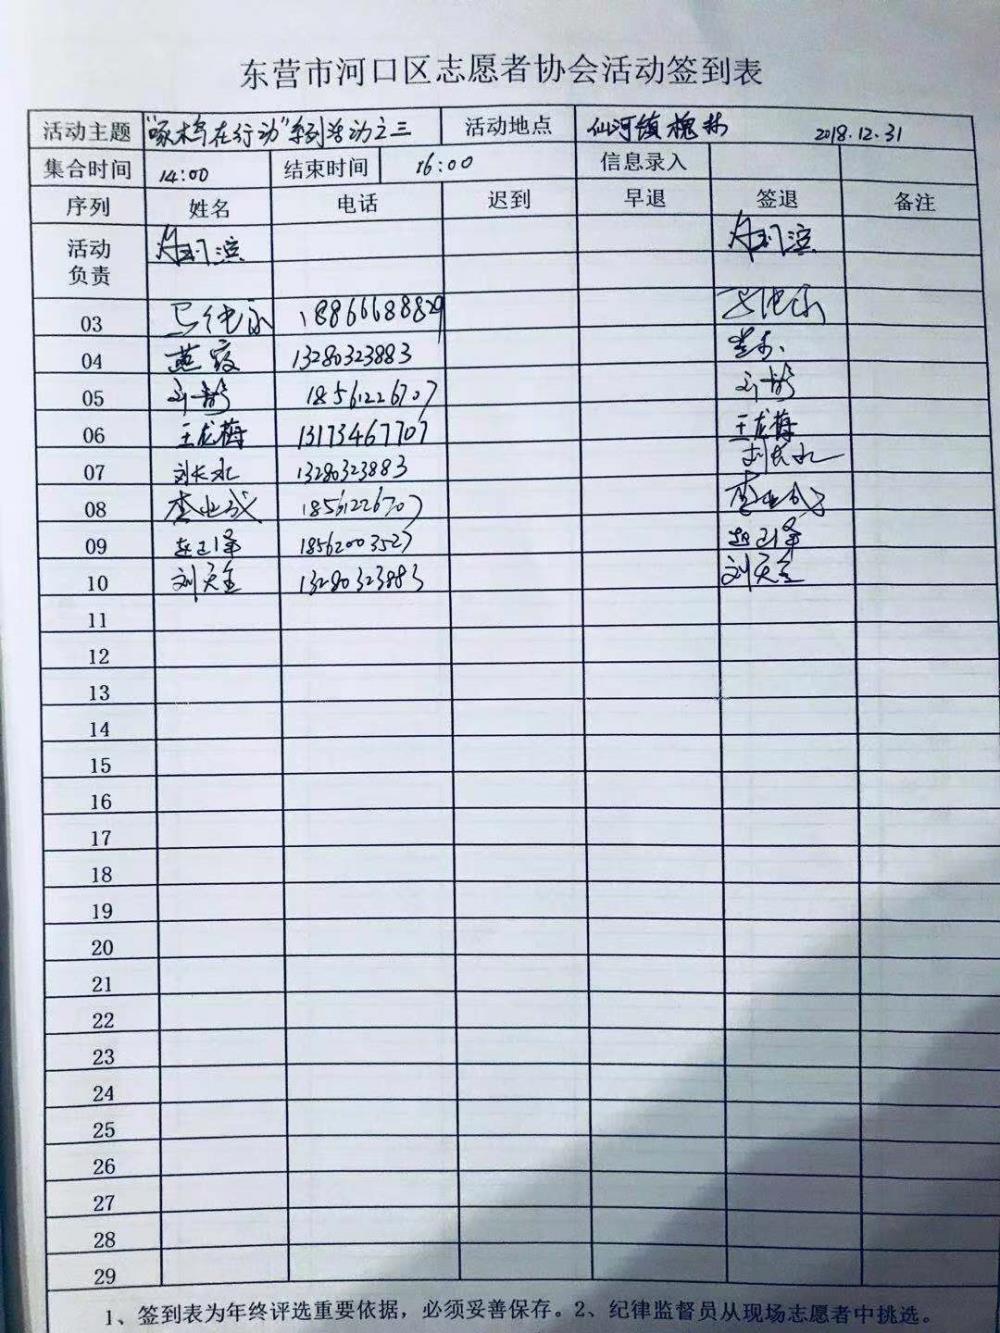 东营市河口区志愿者协会活动签到表
活动主题 "啄木鸟在行动"系列活动之三 活动地点 仙河镇槐林 2018.12.31
集合时间 14:00 结束时间 16:00 信息录入
序列 姓名 电话 迟到 早退 签退 备注
活动
负责 滨 滨
03 18866688829
04 燕霞 13280323883
05 18561226707
06 王龙梅 13173467707 王龙梅
07 刘长水 13280323883 刘长水
08 李业成 18561226707 李业成
09 赵曰泽 18562003527 赵曰泽
10 刘天全 13280323883 刘天全
11
12
13
14
15
16
17
18
19
20
21
22
23
24
25
26
27
28
29
1、签到表为年终评选重要依据，必须妥善保存。2、纪律监督员从现场志愿者中挑选。